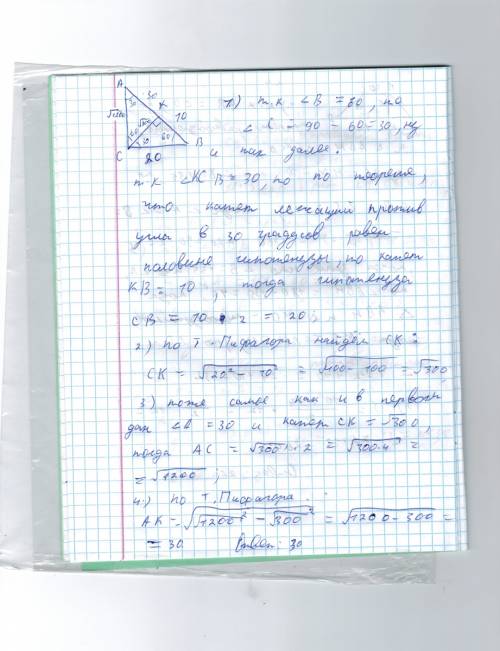 A
30
30
К
√1200
10
√300
60
30
60
C
B
20
1) т.к ∠B = 60, то
∠C = 90 - 60 = 30, ну
и так далее.
т.к ∠KCB = 30, то по теореме,
что катет лежащий против
угла в 30 градусов равен
половине гипотенузы, то катет
KB = 10, тогда гипотенуза
CB = 10 · 2 = 20
2) по т. Пифагора найдем CK:
CK = √20² - 10² = √400 - 100 = √300
3) тоже самое как и в первом
∠ = 30 и катет CK = √300,
тогда AC = √300 · 2 = √300·4 =
= √1200;
4) по т. Пифагора.
AK = √√1200² - √300² = √1200 - 300 =
= 30 Ответ: 30